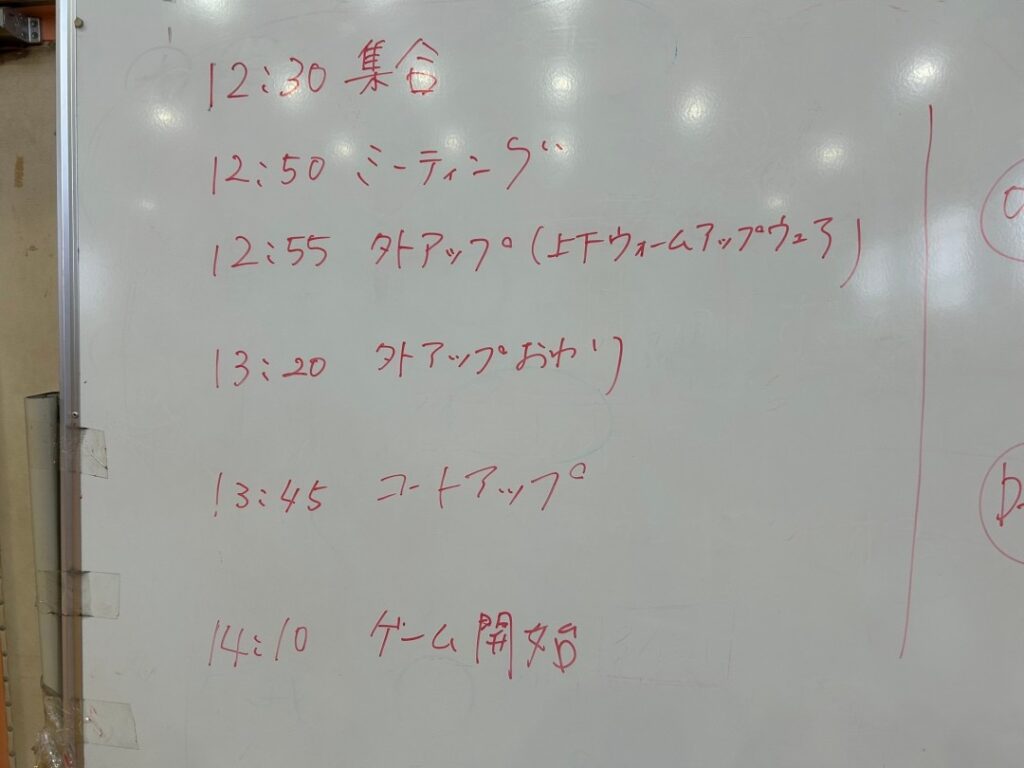 12:30 集合
12:50 ミーティング
12:55 外アップ(上下ウォームアップウェア)
13:20 外アップおわり
13:45 コートアップ
14:10 ゲーム開始